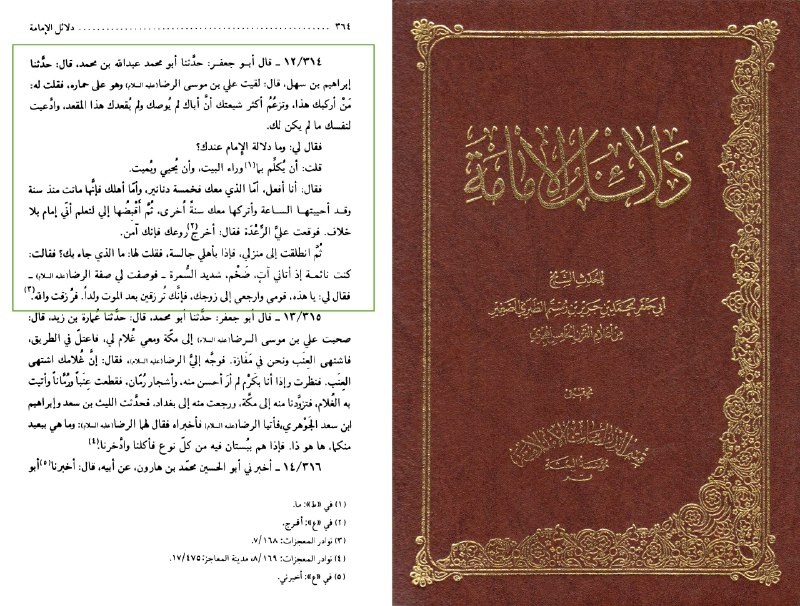 دلائل الإمامة ........................................ ٣٦٤
١٢/٣١٤ ـ قال أبو جعفر: حدَّثنا أبو محمد عبدالله بن محمد، قال: حدَّثنا
إبراهيم بن سهل، قال: لقيت علي بن موسى الرضا(عليه السلام) وهو على حماره، فقلت له:
مَنْ أركبك هذا، وتزعُمُ أكثر شيعتك أنَّ أباك لم يُوصك ولم يُقعدك هذا المقعد، وادَّعيت
لنفسك ما لم يكن لك.
فقال لي: وما دلالة الإمام عندك؟
قلت: أن يُكلِّم بما(١) وراء البيت، وأن يُحيي ويُميت.
فقال: أنا أفعل، أمّا الذي معك فخمسة دنانير، وأمّا أهلك فإنَّها ماتت منذ سنة
وقد أحييتها الساعة وأتركها معك سنةً أُخرى، ثُمَّ أقْبِضُها إلي لتعلم أنّي إمام بلا
خلاف. فوقعت عليَّ الرِّعْدَة فقال: أخرج(٢) روعك فإنك آمن.
ثُمَّ انطلقت إلى منزلي، فإذا بأهلي جالسة، فقلت لها: ما الذي جاء بك؟ فقالت:
كنت نائمة إذ أتاني آتٍ، ضَخْم، شديد السُّمرة ـ فوصفت لي صفة الرضا(عليه السلام) ـ
فقال لي: يا هذه، قومي وارجعي إلى زوجك، فإنَّك تُرزقين بعد الموت ولداً. فرُزقت والله.(٣)
١٣/٣١٥ ـ قال أبو جعفر: حدَّثنا أبو محمد، قال: حدَّثنا عُمارة بن زيد، قال:
صحبت علي بن موسى الرضا(عليه السلام) إلى مكّة ومعي غُلام لي، فاعتلّ في الطريق،
فاشتهى العِنَب ونحن في مَفَازة. فوجَّه إليَّ الرضا(عليه السلام)، فقال: إنَّ غُلامك اشتهى
العِنَب. فنظرت وإذا أنا بكَرْم لم أرَ أحسن منه، وأشجار رُمّان، فقطعت عِنَباً ورُمّاناً وأتيت
به الغُلام، فتزوَّدنا منه إلى مكّة، ورجعت منه إلى بغداد، فحدَّثت الليث بن سعد وإبراهيم
ابن سعد الجَوْهَري، فأتيا الرضا(عليه السلام) فأخبراه فقال لهما الرضا(عليه السلام): وما هي ببعيد
منكما، ها هو ذا. فإذا هم ببُستان فيه من كلّ نوع فأكلنا وادَّخرنا.(٤)
١٤/٣١٦ ـ أخبرني أبو الحسين محمّد بن هارون، عن أبيه، قال: أخبرنا(٥) أبو
(١) في «ط»: ما.
(٢) في «ع»: أفرج.
(٣) نوادر المعجزات: ٧/١٦٨.
(٤) نوادر المعجزات: ٨/١٦٩، مدينة المعاجز: ١٧/٤٧٥.
(٥) في «م»: أخبرني.
دلائل الإمامة
للمحدث الشيخ
أبي جعفر محمد بن جرير بن رستم الطبري الصغير
من أعلام القرن الخامس الهجري
تحقيق
قسم الدراسات الإسلامية
مؤسسة البعثة
قم